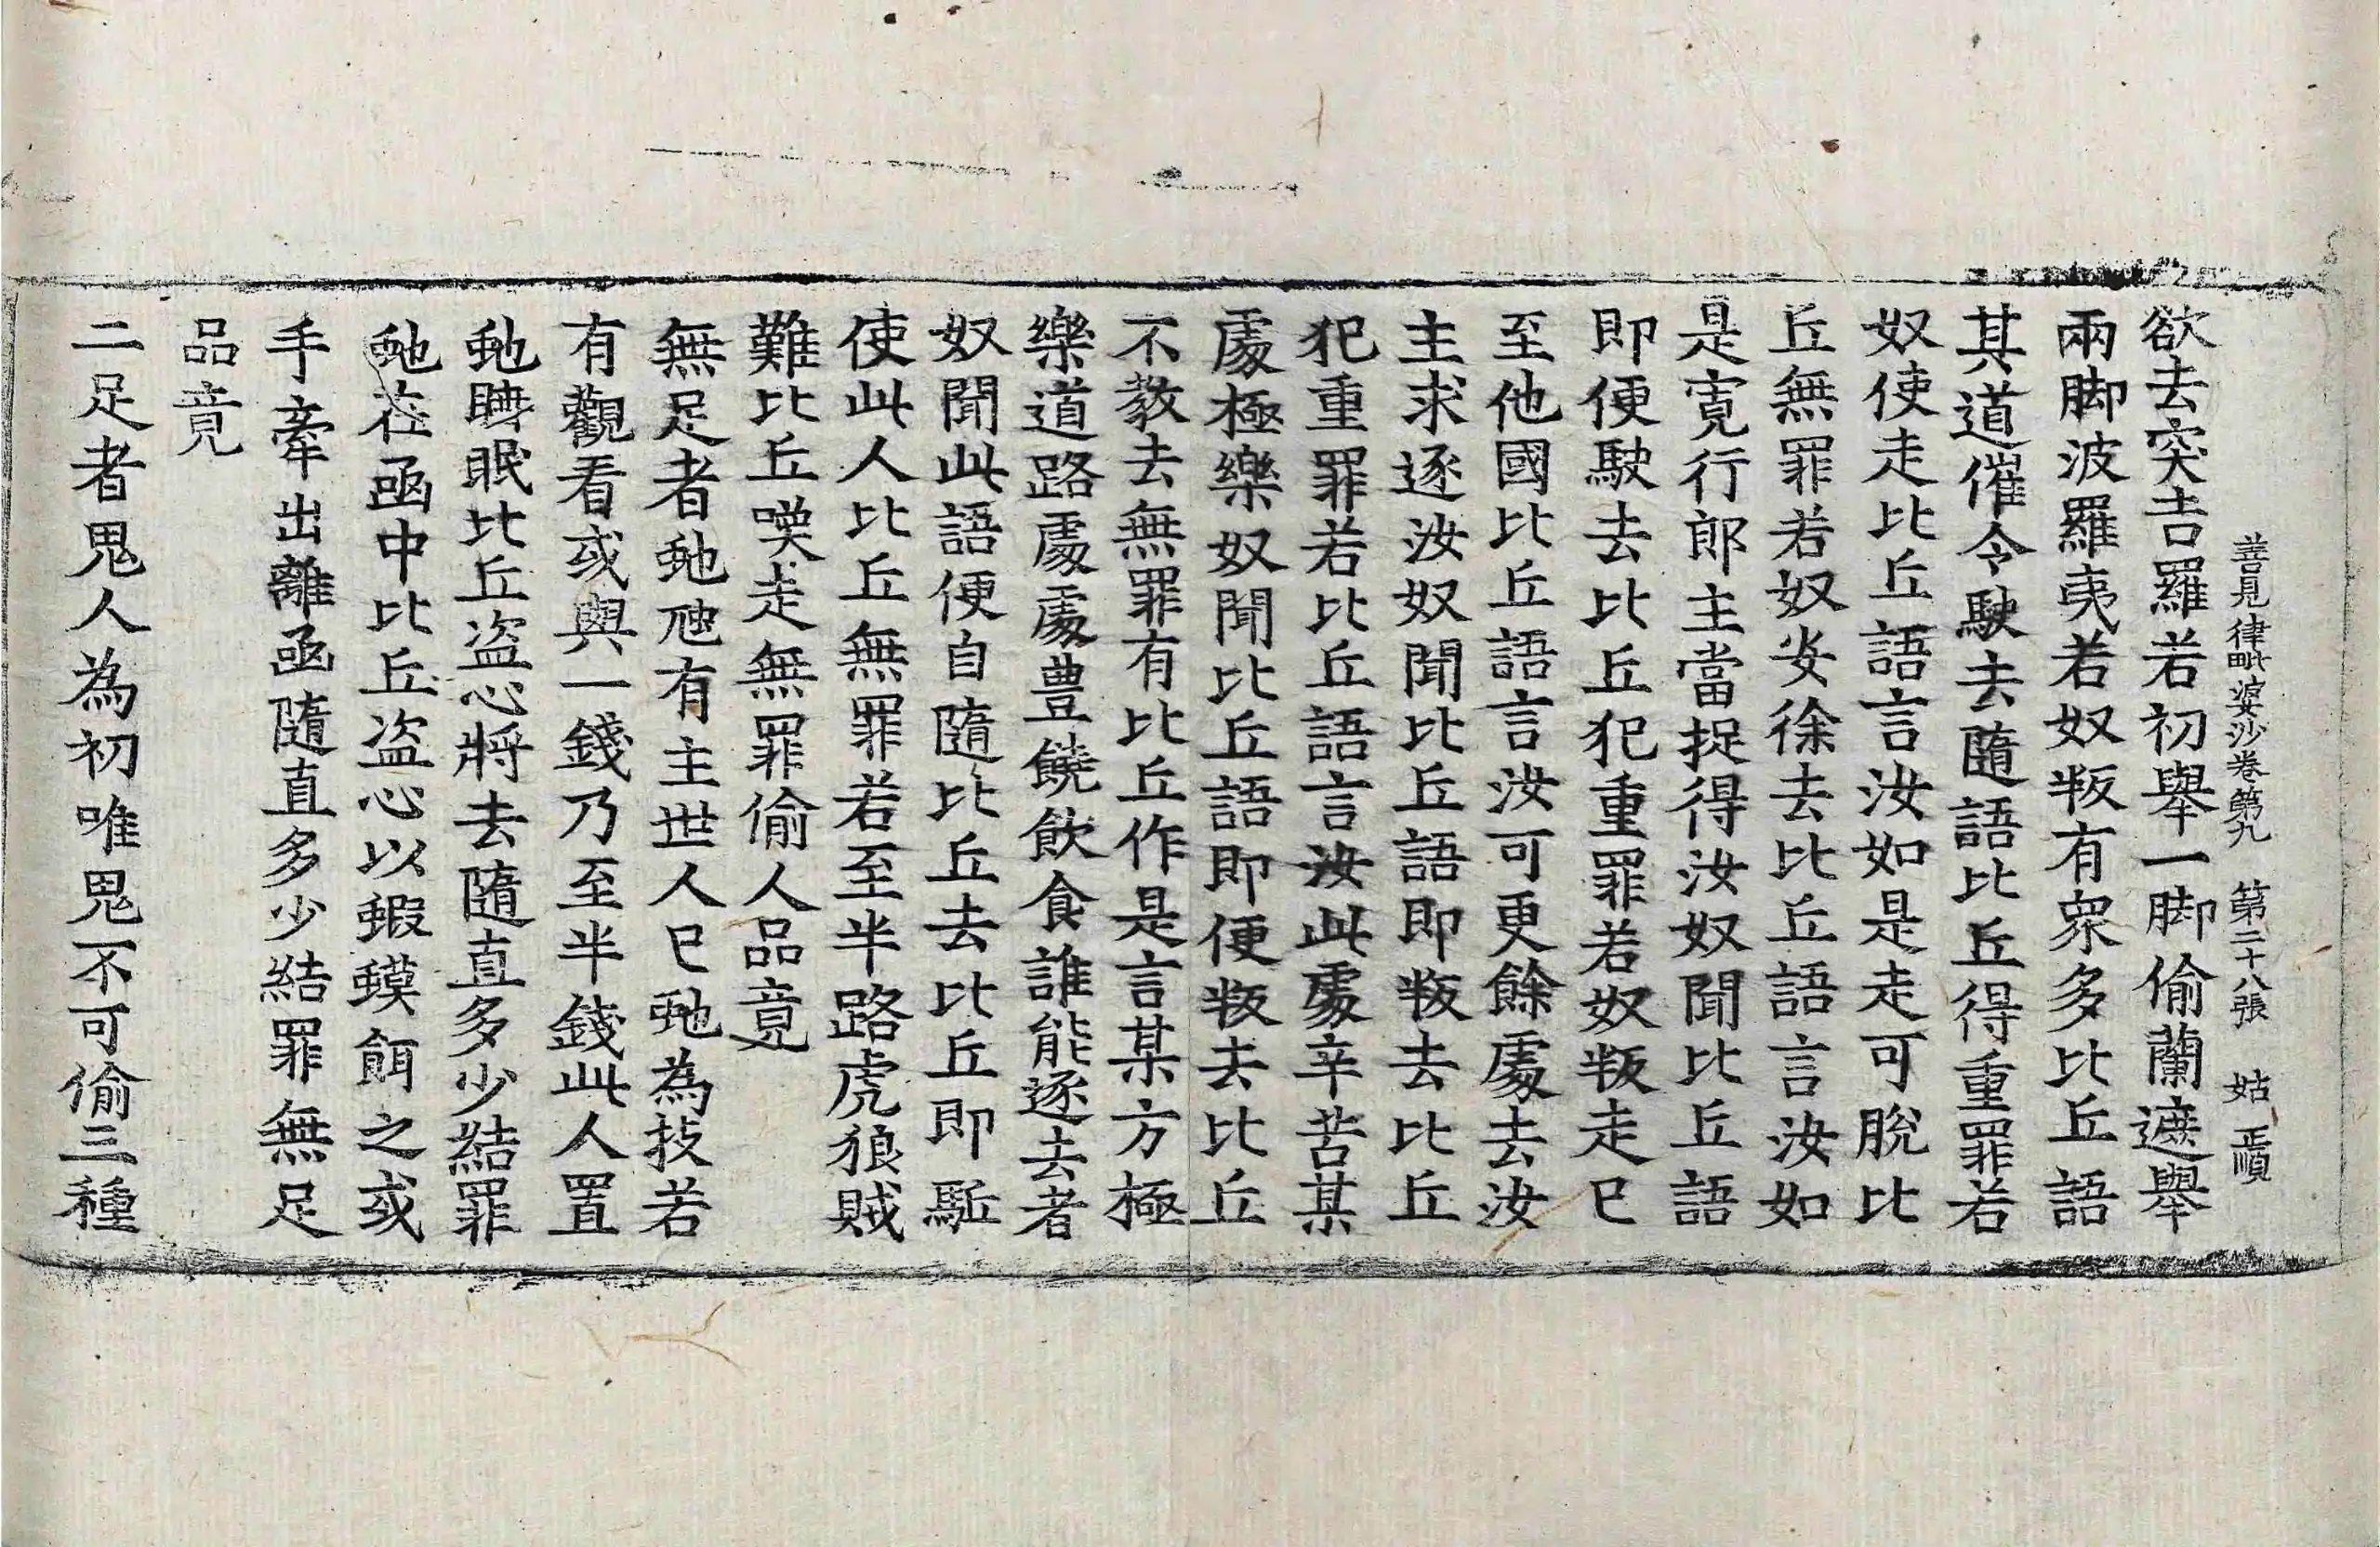 善見律毗婆沙卷第九　第二十八張　姑　正順
欲去突吉羅若初舉一脚偷蘭遮舉
兩脚波羅夷若奴叛有衆多比丘語
其道催令駛去隨語比丘得重罪若
奴使走比丘語言汝如是走可脫比
丘無罪若奴安徐去比丘語言汝如
是寬行郎主當捉得汝奴聞比丘語
即便駛去比丘犯重罪若奴叛走已
至他國比丘語言汝可更餘處去汝
主求逐汝奴聞比丘語即叛去比丘
犯重罪若比丘語言汝此處辛苦某
處極樂奴聞比丘語即便叛去比丘
不教去無罪有比丘作是言某方極
樂道路處處豊饒飲食誰能逐去者
奴聞此語便自隨比丘去比丘即駈
使此人比丘無罪若至半路虎狼賊
難比丘嘆走無罪偷人品竟
無足者虵虺有主世人已虵為技若
有觀看或與一錢乃至半錢此人置
虵睡眠比丘盗心將去隨直多少結罪
虵在凾中比丘盗心以蝦蟆餌之或
手牽出離凾隨直多少結罪無足
品竟
二足者鬼人為初唯鬼不可偷三種